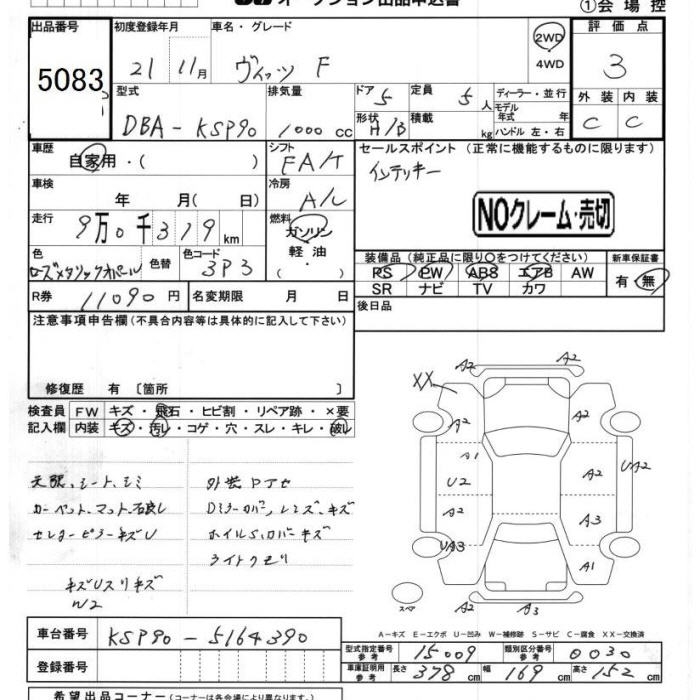 オークション出品申込書
①会場控
出品番号 5083
初度登録年月 21 11月
車名・グレード ヴィッツ F
2WD 4WD
評価点 3
外装 内装 C C
型式 DBA-KSP90
排気量 1000 cc
ドア 5 定員 5人
形状 H/B 積載 kg
ディーラー・並行
モデル年式 年
ハンドル 左・右
車歴 自家用・( )
シフト FA/T
セールスポイント (正常に機能するものに限ります)
インテリキー
車検 年 月( 日)
冷房 A/C
NOクレーム・売切
走行 9万0千319km
燃料 ガソリン 軽油・
色 ローズメタリックオパール 色替 色コード 3P3
装備品(純正品に限り○をつけてください)
PS PW ABS エアB AW
SR ナビ TV カワ
新車保証書 有・無
R券 11090円 名変期限 月 日
後日品
注意事項申告欄(不具合内容等は具体的に記入して下さい)
修復歴 有〔箇所 〕
検査員 FW キズ・飛石・ヒビ割・リペア跡・×要
記入欄 内装 キズ・汚レ・コゲ・穴・スレ・キレ・破レ
天張、シート、シミ
カーペット、マット、右良し
センターピラーキズU
キズUスリキズ
W2
Dミラーカバー、レンズ、キズ
ホイルS、カバーキズ
XX A2 A2
A2 A2
A1
U2 A2 UA2
A2 A3
UA3 A1
スペア A2 A3
A-キズ E-エクボ U-凹み W-補修跡 S-サビ C-腐食 XX-交換済
車台番号 KSP90-5164390
型式指定番号 15009 類別区分番号 0030
登録番号
車庫証明用参考 長さ 378cm 幅 169cm 高さ 152cm
希望出品コーナー(コーナーは各会場により異なります。)